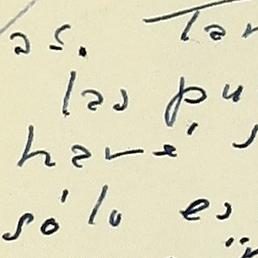 as. Tan
las pu
haré s
sólo es